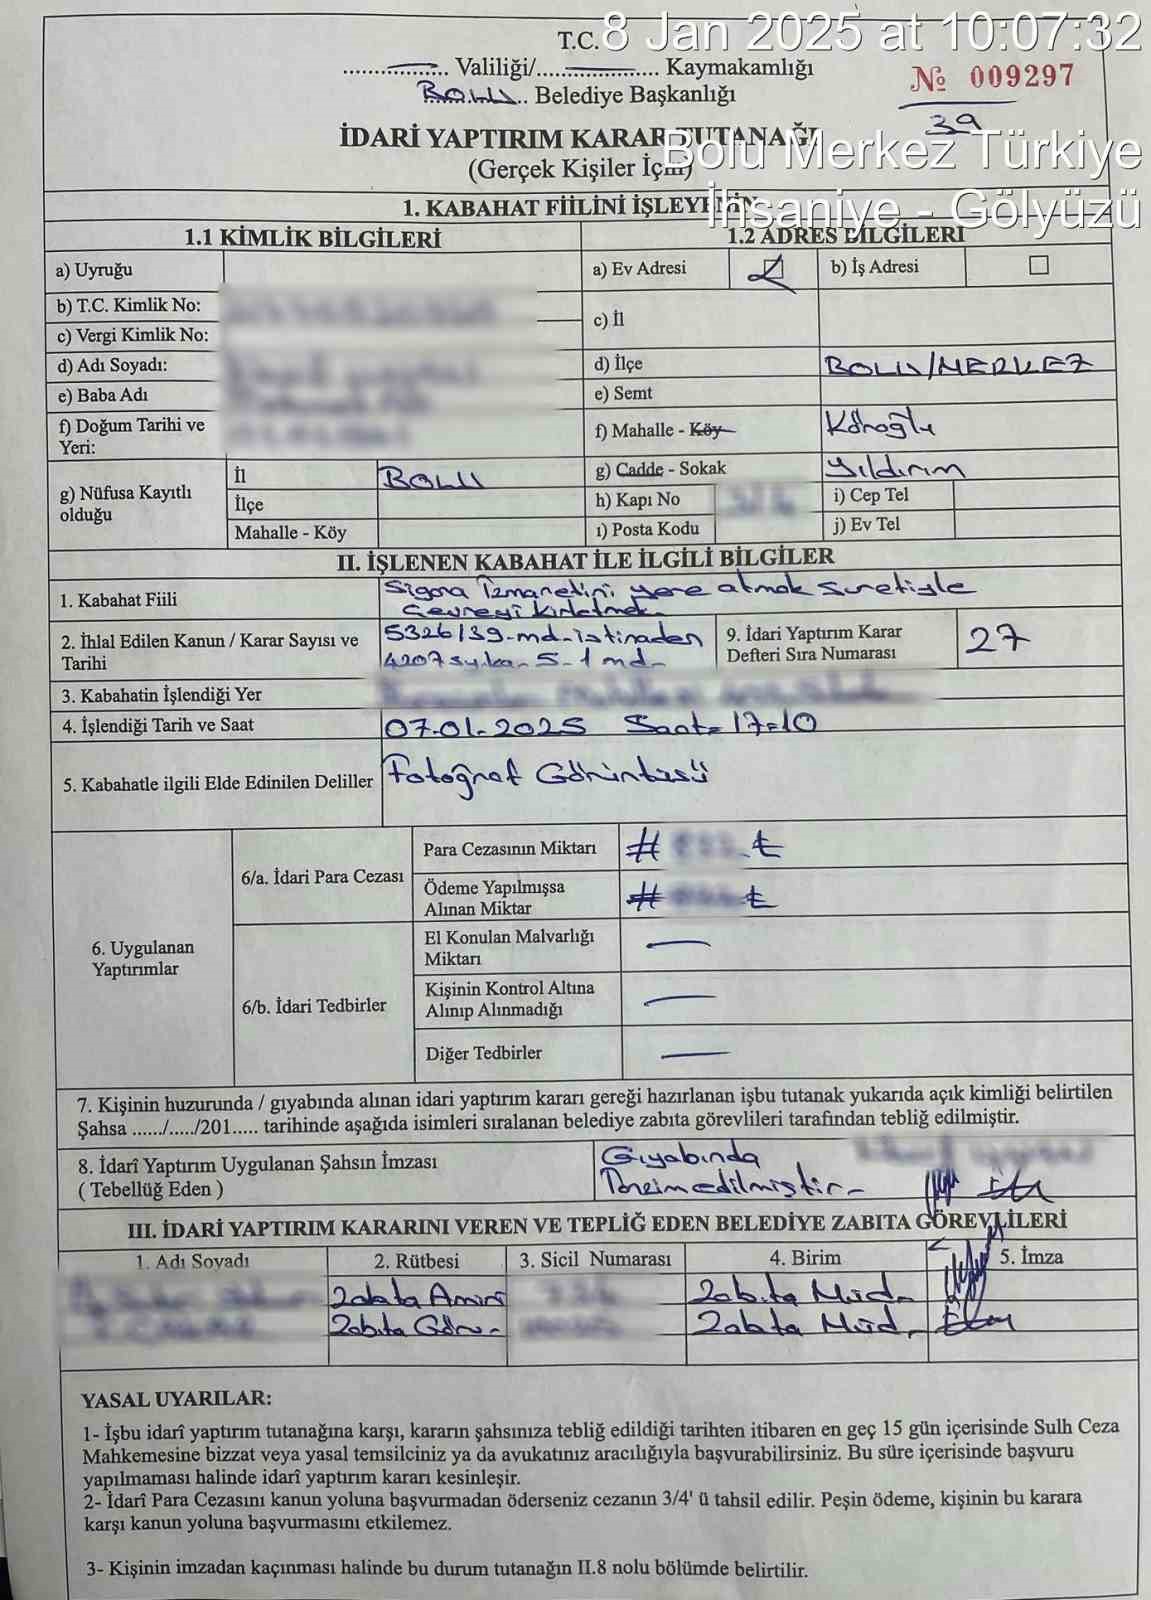 8 Jan 2025 at 10:07:32
Bolu Merkez Türkiye
İhsaniye - Gölyüzü
T.C.
.................... Valiliği/.................... Kaymakamlığı
BOLU.. Belediye Başkanlığı
№ 009297
39
İDARİ YAPTIRIM KARAR TUTANAĞI
(Gerçek Kişiler İçin)
1. KABAHAT FİİLİNİ İŞLEYENİN
1.1 KİMLİK BİLGİLERİ
1.2 ADRES BİLGİLERİ
a) Uyruğu
a) Ev Adresi
b) İş Adresi
b) T.C. Kimlik No:
c) Vergi Kimlik No:
c) İl
d) Adı Soyadı:
d) İlçe BOLU/MERKEZ
e) Baba Adı
e) Semt
f) Doğum Tarihi ve
Yeri:
f) Mahalle - Köy Köroğlu
g) Nüfusa Kayıtlı
olduğu
İl BOLU
İlçe
Mahalle - Köy
g) Cadde - Sokak Yıldırım
h) Kapı No
i) Cep Tel
ı) Posta Kodu
j) Ev Tel
II. İŞLENEN KABAHAT İLE İLGİLİ BİLGİLER
1. Kabahat Fiili
Sigara İzmaretini yere atmak suretiyle
Çevreyi kirletmek.
2. İhlal Edilen Kanun / Karar Sayısı ve
Tarihi
5326/39-md-istinaden
4207 sy.ka-5-1 md-
9. İdari Yaptırım Karar
Defteri Sıra Numarası
27
3. Kabahatin İşlendiği Yer
4. İşlendiği Tarih ve Saat
07.01.2025 Saat= 17=10
5. Kabahatle ilgili Elde Edinilen Deliller
Fotoğraf Görüntüsü
6. Uygulanan
Yaptırımlar
6/a. İdari Para Cezası
Para Cezasının Miktarı # ₺
Ödeme Yapılmışsa
Alınan Miktar # ₺
6/b. İdari Tedbirler
El Konulan Malvarlığı
Miktarı
Kişinin Kontrol Altına
Alınıp Alınmadığı
Diğer Tedbirler
7. Kişinin huzurunda / gıyabında alınan idari yaptırım kararı gereği hazırlanan işbu tutanak yukarıda açık kimliği belirtilen
Şahsa ....../...../201..... tarihinde aşağıda isimleri sıralanan belediye zabıta görevlileri tarafından tebliğ edilmiştir.
8. İdarî Yaptırım Uygulanan Şahsın İmzası
( Tebellüğ Eden )
Gıyabında
Tanzim edilmiştir-
III. İDARİ YAPTIRIM KARARINI VEREN VE TEPLİĞ EDEN BELEDİYE ZABITA GÖREVLİLERİ
1. Adı Soyadı
2. Rütbesi
3. Sicil Numarası
4. Birim
5. İmza
Zabıta Amiri
Zabıta Müd-
Zabıta Görv-
Zabıta Müd-
YASAL UYARILAR:
1- İşbu idarî yaptırım tutanağına karşı, kararın şahsınıza tebliğ edildiği tarihten itibaren en geç 15 gün içerisinde Sulh Ceza
Mahkemesine bizzat veya yasal temsilciniz ya da avukatınız aracılığıyla başvurabilirsiniz. Bu süre içerisinde başvuru
yapılmaması halinde idarî yaptırım kararı kesinleşir.
2- İdarî Para Cezasını kanun yoluna başvurmadan öderseniz cezanın 3/4' ü tahsil edilir. Peşin ödeme, kişinin bu karara
karşı kanun yoluna başvurmasını etkilemez.
3- Kişinin imzadan kaçınması halinde bu durum tutanağın II.8 nolu bölümde belirtilir.